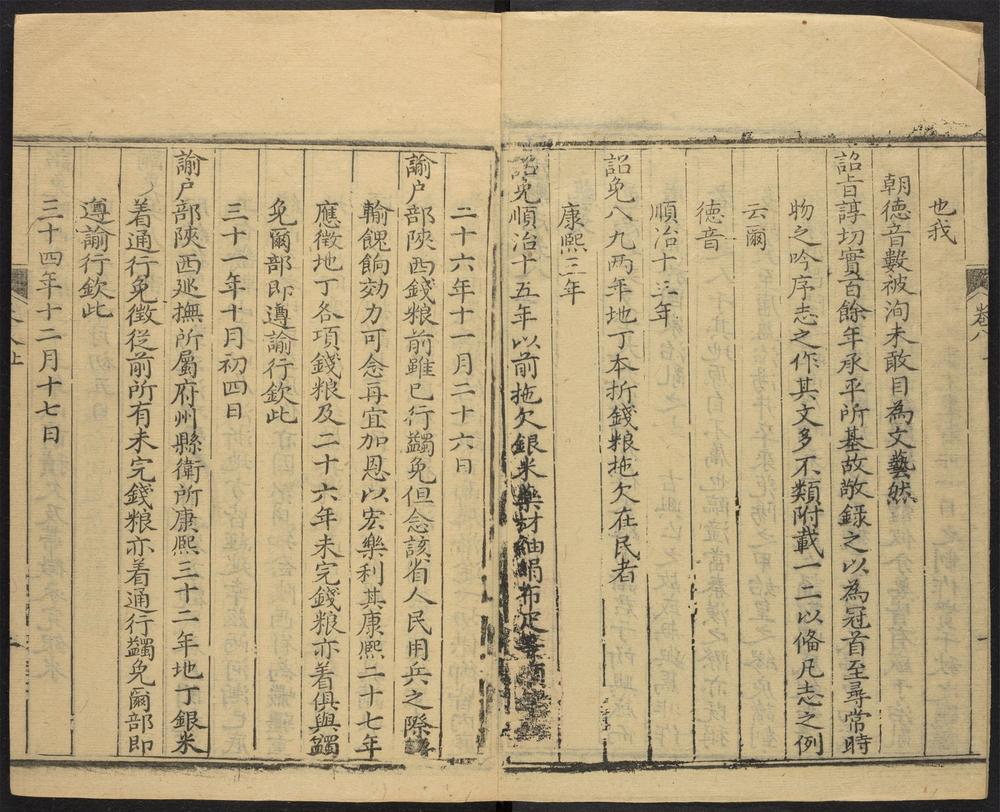 也我
朝德音數被洵未敢目為文藝然
詔旨諄切實百餘年承平所基故敬錄之以為冠首至尋常時
物之吟序志之作其文多不類附載一二以俻凡志之例
云爾
德音
順治十三年
詔免八九兩年地丁本折錢粮拖欠在民者
康熙三年
詔免順治十五年以前拖欠銀米藥材紬絹布疋等項
卷八
二十六年十一月二十六日
諭户部陝西錢粮前雖已行蠲免但念該省人民用兵之際
輸餽餉効力可念再宜加恩以宏樂利其康熙二十七年
應徵地丁各項錢粮及二十六年未完錢粮亦着俱與蠲
免爾部即遵諭行欽此
三十一年十月初四日
諭户部陝西廵撫所屬府州縣衛所康熙三十二年地丁銀米
着通行免徵從前所有未完錢粮亦着通行蠲免爾部即
遵諭行欽此
三十四年十二月十七日